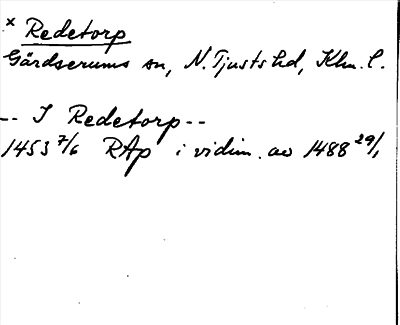 × Redetorp
Gärdserums sn, N. Tjusts hd, Klm. l.
-- I Redetorp --
1453 7/6 RAp i vidim. av 1488 29/1